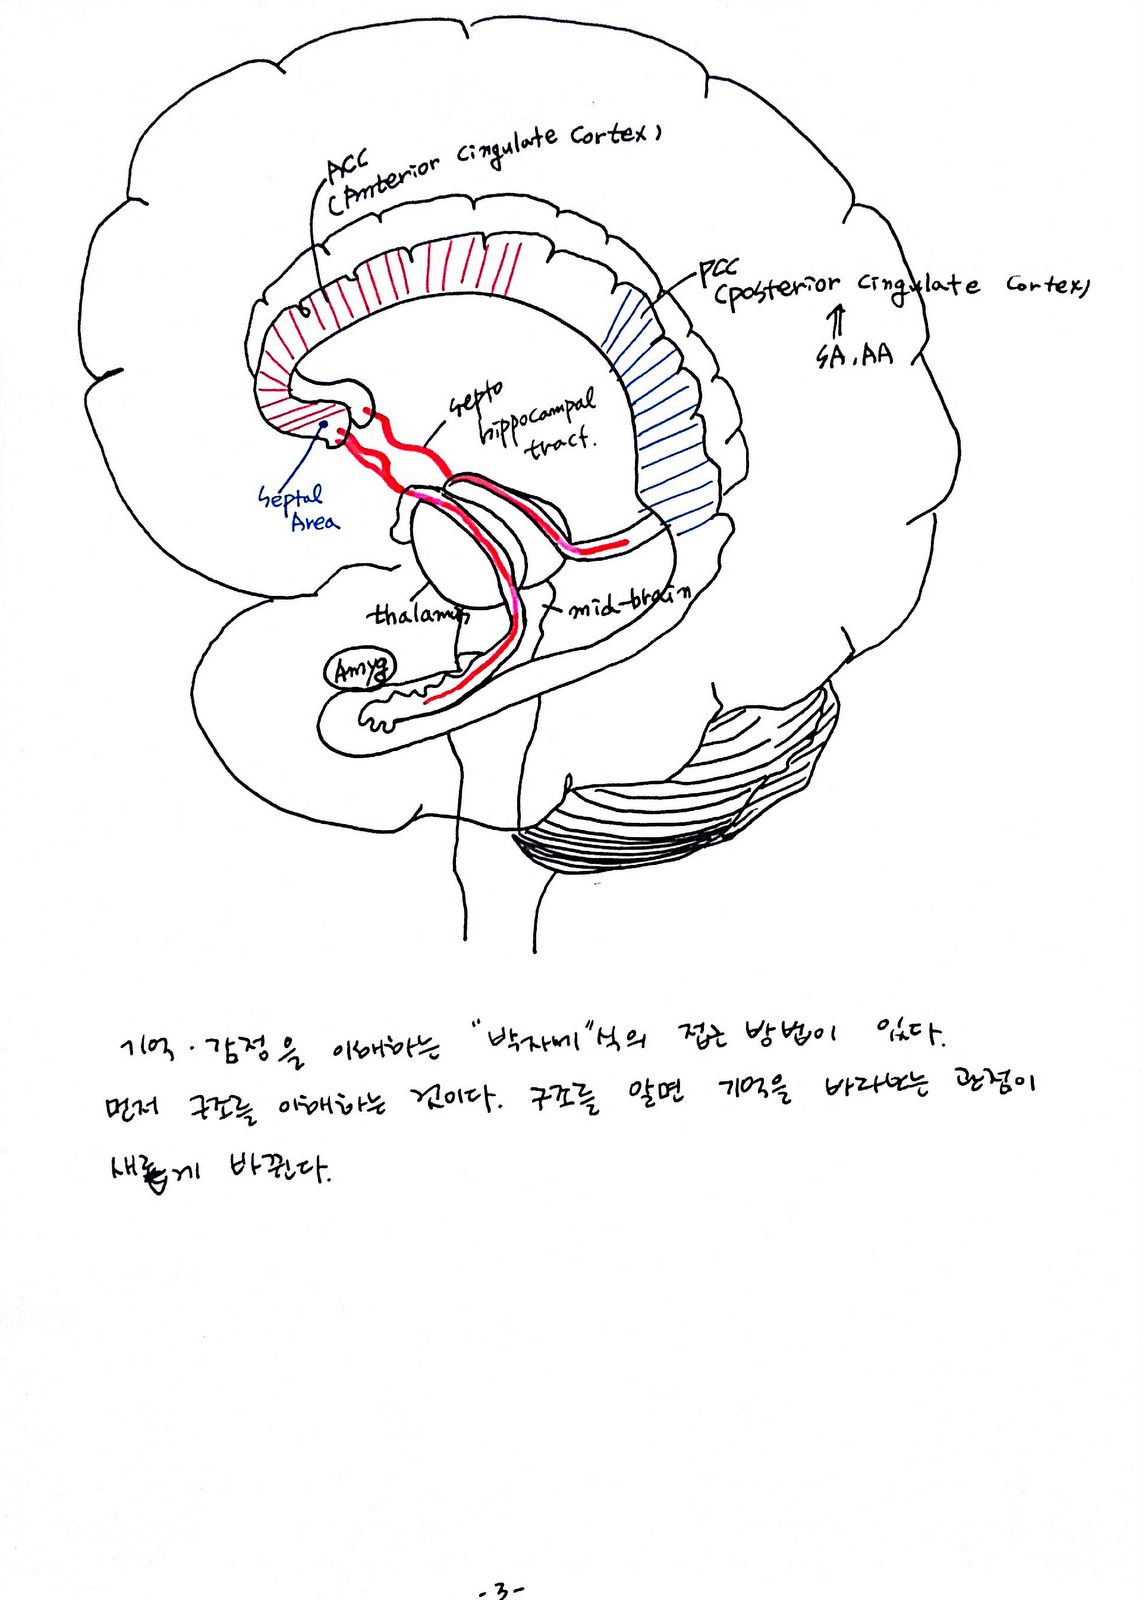 ACC
(Anterior Cingulate Cortex)
PCC
(posterior Cingulate Cortex)
⇑
SA, AA
septo
hippocampal
tract.
septal
Area
thalamus
mid-brain
Amyg
기억·감정을 이해하는 "박자세"식의 접근 방법이 있다.
먼저 구조를 이해하는 것이다. 구조를 알면 기억을 바라보는 관점이
새롭게 바뀐다.
-3-